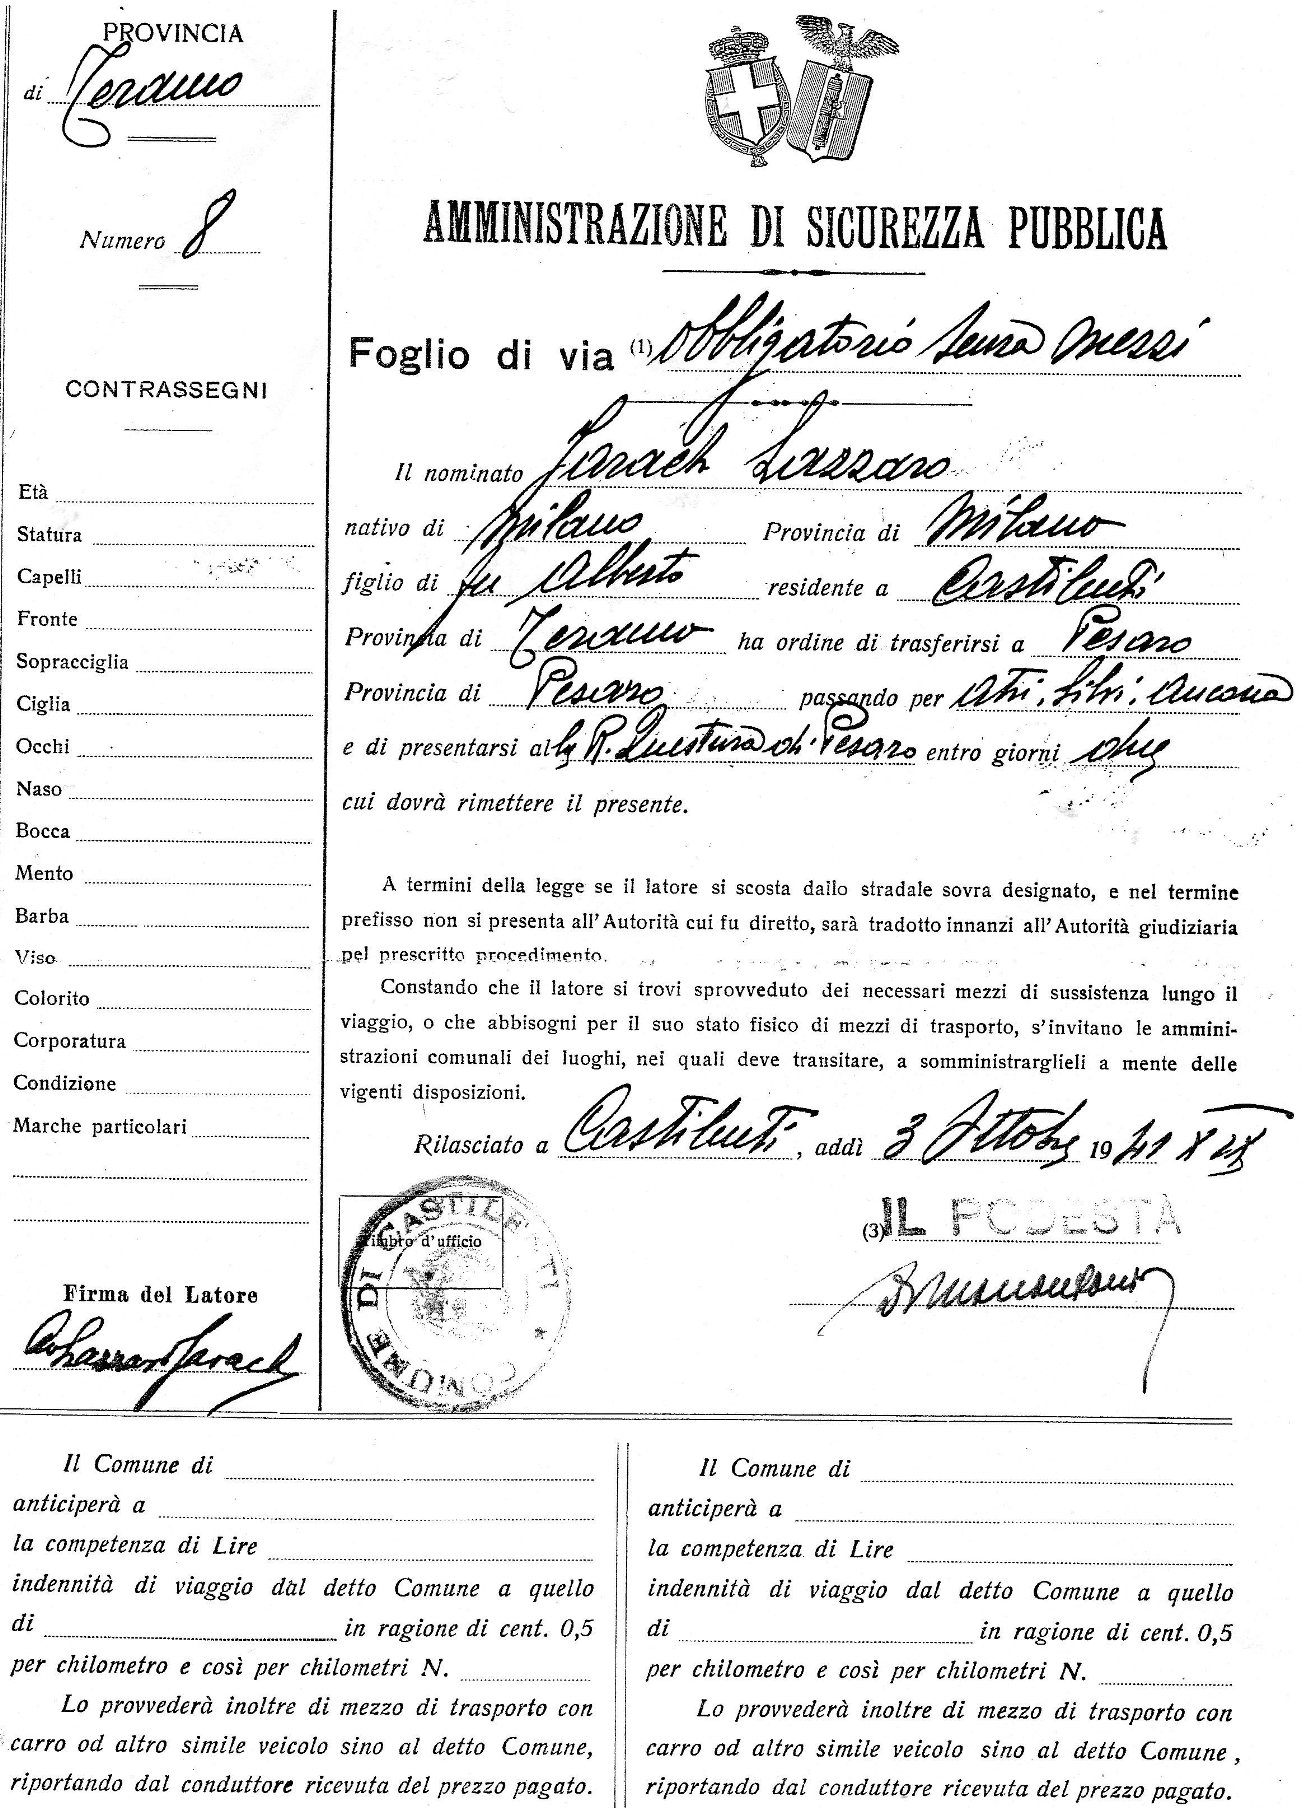 PROVINCIA
di Teramo
Numero 8
CONTRASSEGNI
Età
Statura
Capelli
Fronte
Sopracciglia
Ciglia
Occhi
Naso
Bocca
Mento
Barba
Viso
Colorito
Corporatura
Condizione
Marche particolari
Firma del Latore
Lazzaro Jarach
AMMINISTRAZIONE DI SICUREZZA PUBBLICA
Foglio di via (1) obbligatorio senza mezzi
Il nominato Jarach Lazzaro
nativo di Milano Provincia di Milano
figlio di fu Alberto residente a Castilenti
Provincia di Teramo ha ordine di trasferirsi a Pesaro
Provincia di Pesaro passando per Atri, Silvi, Ancona
e di presentarsi alla R. Questura di Pesaro entro giorni due
cui dovrà rimettere il presente.
A termini della legge se il latore si scosta dallo stradale sovra designato, e nel termine
prefisso non si presenta all'Autorità cui fu diretto, sarà tradotto innanzi all'Autorità giudiziaria
pel prescritto procedimento.
Constando che il latore si trovi sprovveduto dei necessari mezzi di sussistenza lungo il
viaggio, o che abbisogni per il suo stato fisico di mezzi di trasporto, s'invitano le ammini-
strazioni comunali dei luoghi, nei quali deve transitare, a somministrarglieli a mente delle
vigenti disposizioni.
Rilasciato a Castilenti, addì 3 Ottobre 1941 XIX
Timbro d'ufficio
COMUNE DI CASTILENTI
(3) IL PODESTÀ
Il Comune di
anticiperà a
la competenza di Lire
indennità di viaggio dal detto Comune a quello
di in ragione di cent. 0,5
per chilometro e così per chilometri N.
Lo provvederà inoltre di mezzo di trasporto con
carro od altro simile veicolo sino al detto Comune,
riportando dal conduttore ricevuta del prezzo pagato.
Il Comune di
anticiperà a
la competenza di Lire
indennità di viaggio dal detto Comune a quello
di in ragione di cent. 0,5
per chilometro e così per chilometri N.
Lo provvederà inoltre di mezzo di trasporto con
carro od altro simile veicolo sino al detto Comune,
riportando dal conduttore ricevuta del prezzo pagato.